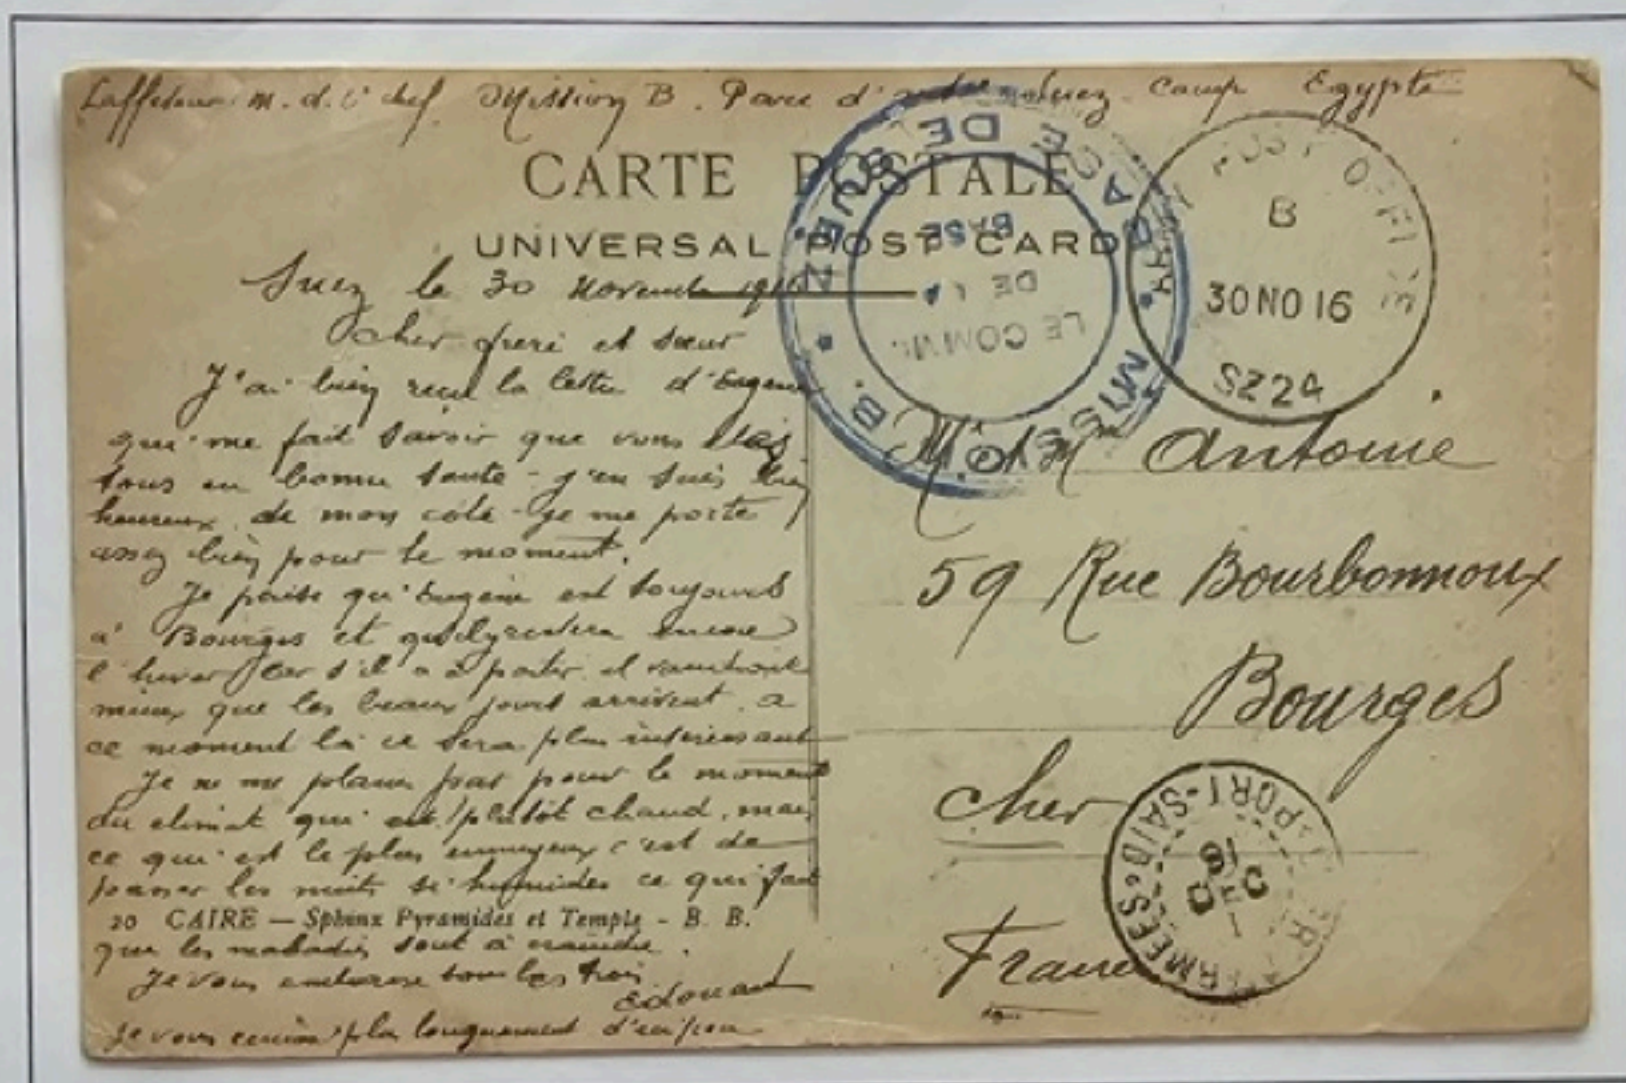 m. d. l. chef Mission B. Parc d' Suez Camp Egypte
CARTE POSTALE
UNIVERSAL POST CARD
Suez le 30 Novembre 1916
Cher frere et sœur
J'ai bien recu la lettre d'Eugene
qui me fait savoir que vous etes
tous en bonne sante - j'en suis bien
heureux, de mon côté - je me porte
assez bien pour le moment.
Je pense qu'Eugène est toujours
à Bourges et qu'il y restera encore
l'hiver car s'il a à partir il vaudrait
mieux que les beaux jours arrivent. a
ce moment là ce sera plus intéressant
Je ne me plains pas pour le moment
du climat qui est plutôt chaud, mais
ce qui est le plus ennuyeux c'est de
passer les nuits si humides ce qui fait
20 CAIRE — Sphinx Pyramides et Temple - B. B.
que les maladies sont à craindre.
Je vous embrasse tous les trois
Edouard
Je vous plus longuement d'ici peu
BASE DE SUEZ
MISS B.
LE COMM
DE LA
BASE
ARMY POST OFFICE
B
30 NO 16
SZ24
M et Me Antoine
59 Rue Bourbonnoux
Bourges
Cher
France
ARMEES PORT-SAID
1
DEC
16